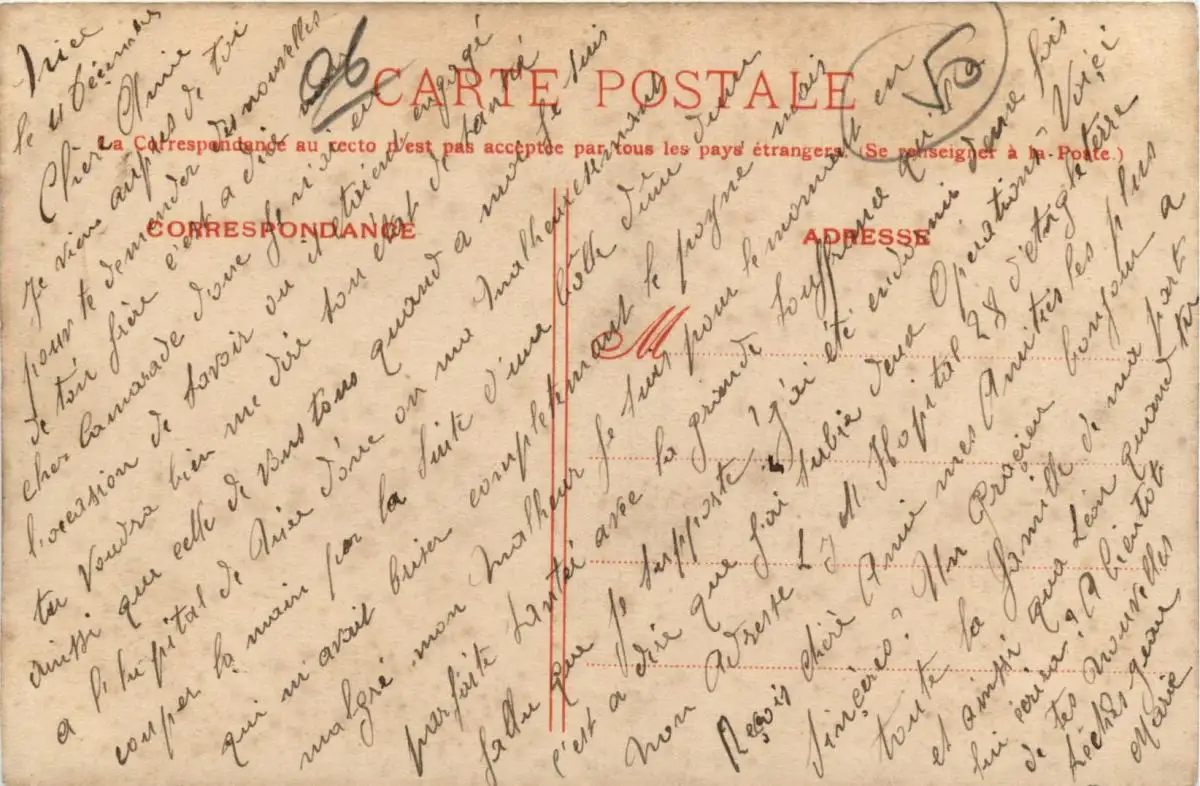 96
50
CARTE POSTALE
La Correspondance au recto n'est pas acceptée par tous les pays étrangers. (Se renseigner à la Poste.)
CORRESPONDANCE
ADRESSE
M
Nice
le 11 Décembre
Cher Amie
Je vien aupres de toi
pour te demender des nouvelles
de ton frère c'est a dire mon
cher Camarade donc je n'ai eu
l'occasion de savoir ou il etoient engagé
tu voudra bien me dire ton état de santé
ainssi que celle de vous tous quand a moi je suis
a l'hopital de Nice dons on ma malheureusement
couper la main par la suite d'une balle dum dum
qui m'avait briser completemant le poigne mais
malgré mon malheur je suis pour le moment en
parfaite Santé avec la grande souffrance qu'il a
fallu que je supporte j'ai été endormis deuse fois
c'est a dire que j'ai subie deux Opérations Voiçi
mon Adresse L M Hopital 28 d'Angleterre
Reçois chère Amie mes Amitiés les plus
sinçères Un Graçieu bonjour a
toute la famille de ma part
et ainssi qua Léon quand tu
lui écrira A bientot
de tes nouvelles
jean
Marie